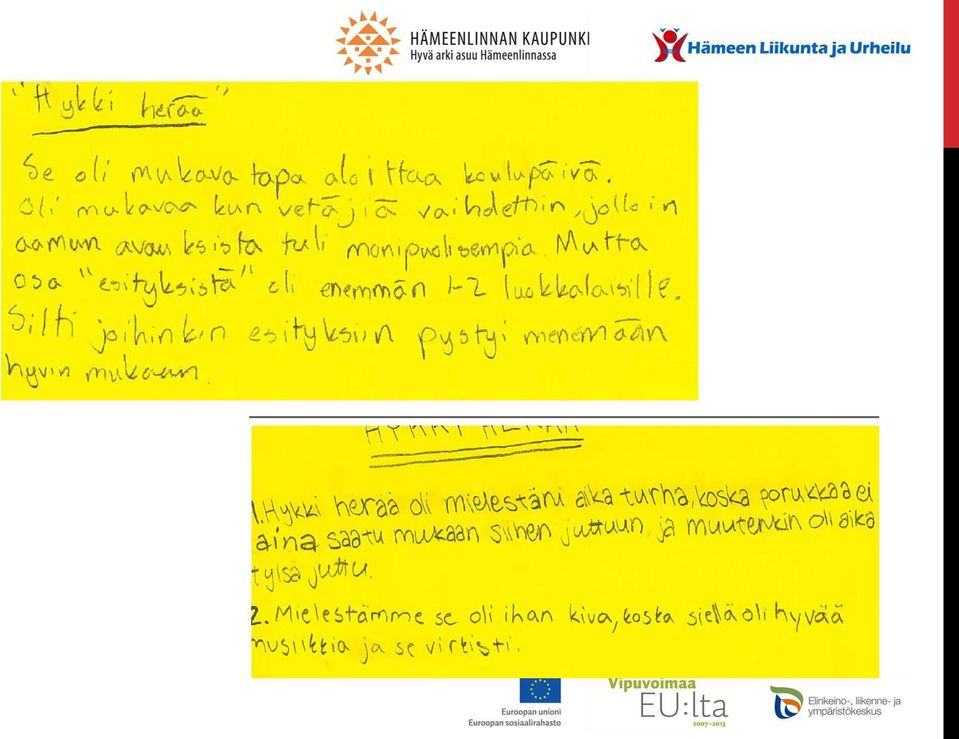 HÄMEENLINNAN KAUPUNKI
Hyvä arki asuu Hämeenlinnassa
Hämeen Liikunta ja Urheilu
"Hykki herää"
Se oli mukava tapa aloittaa koulupäivä.
Oli mukavaa kun vetäjiä vaihdettiin, jolloin
aamun avauksista tuli monipuolisempia. Mutta
osa "esityksistä" oli enemmän 1-2 luokkalaisille.
Silti joihinkin esityksiin pystyi menemään
hyvin mukaan.
HYKKI HERÄÄ
1. Hykki herää oli mielestäni aika turha, koska porukkaa ei
aina saatu mukaan siihen juttuun, ja muutenkin oli aika
tylsä juttu.
2. Mielestämme se oli ihan kiva, koska siellä oli hyvää
musiikkia ja se virkisti.
Euroopan unioni
Euroopan sosiaalirahasto
Vipuvoimaa
EU:lta
2007–2013
Elinkeino-, liikenne- ja
ympäristökeskus